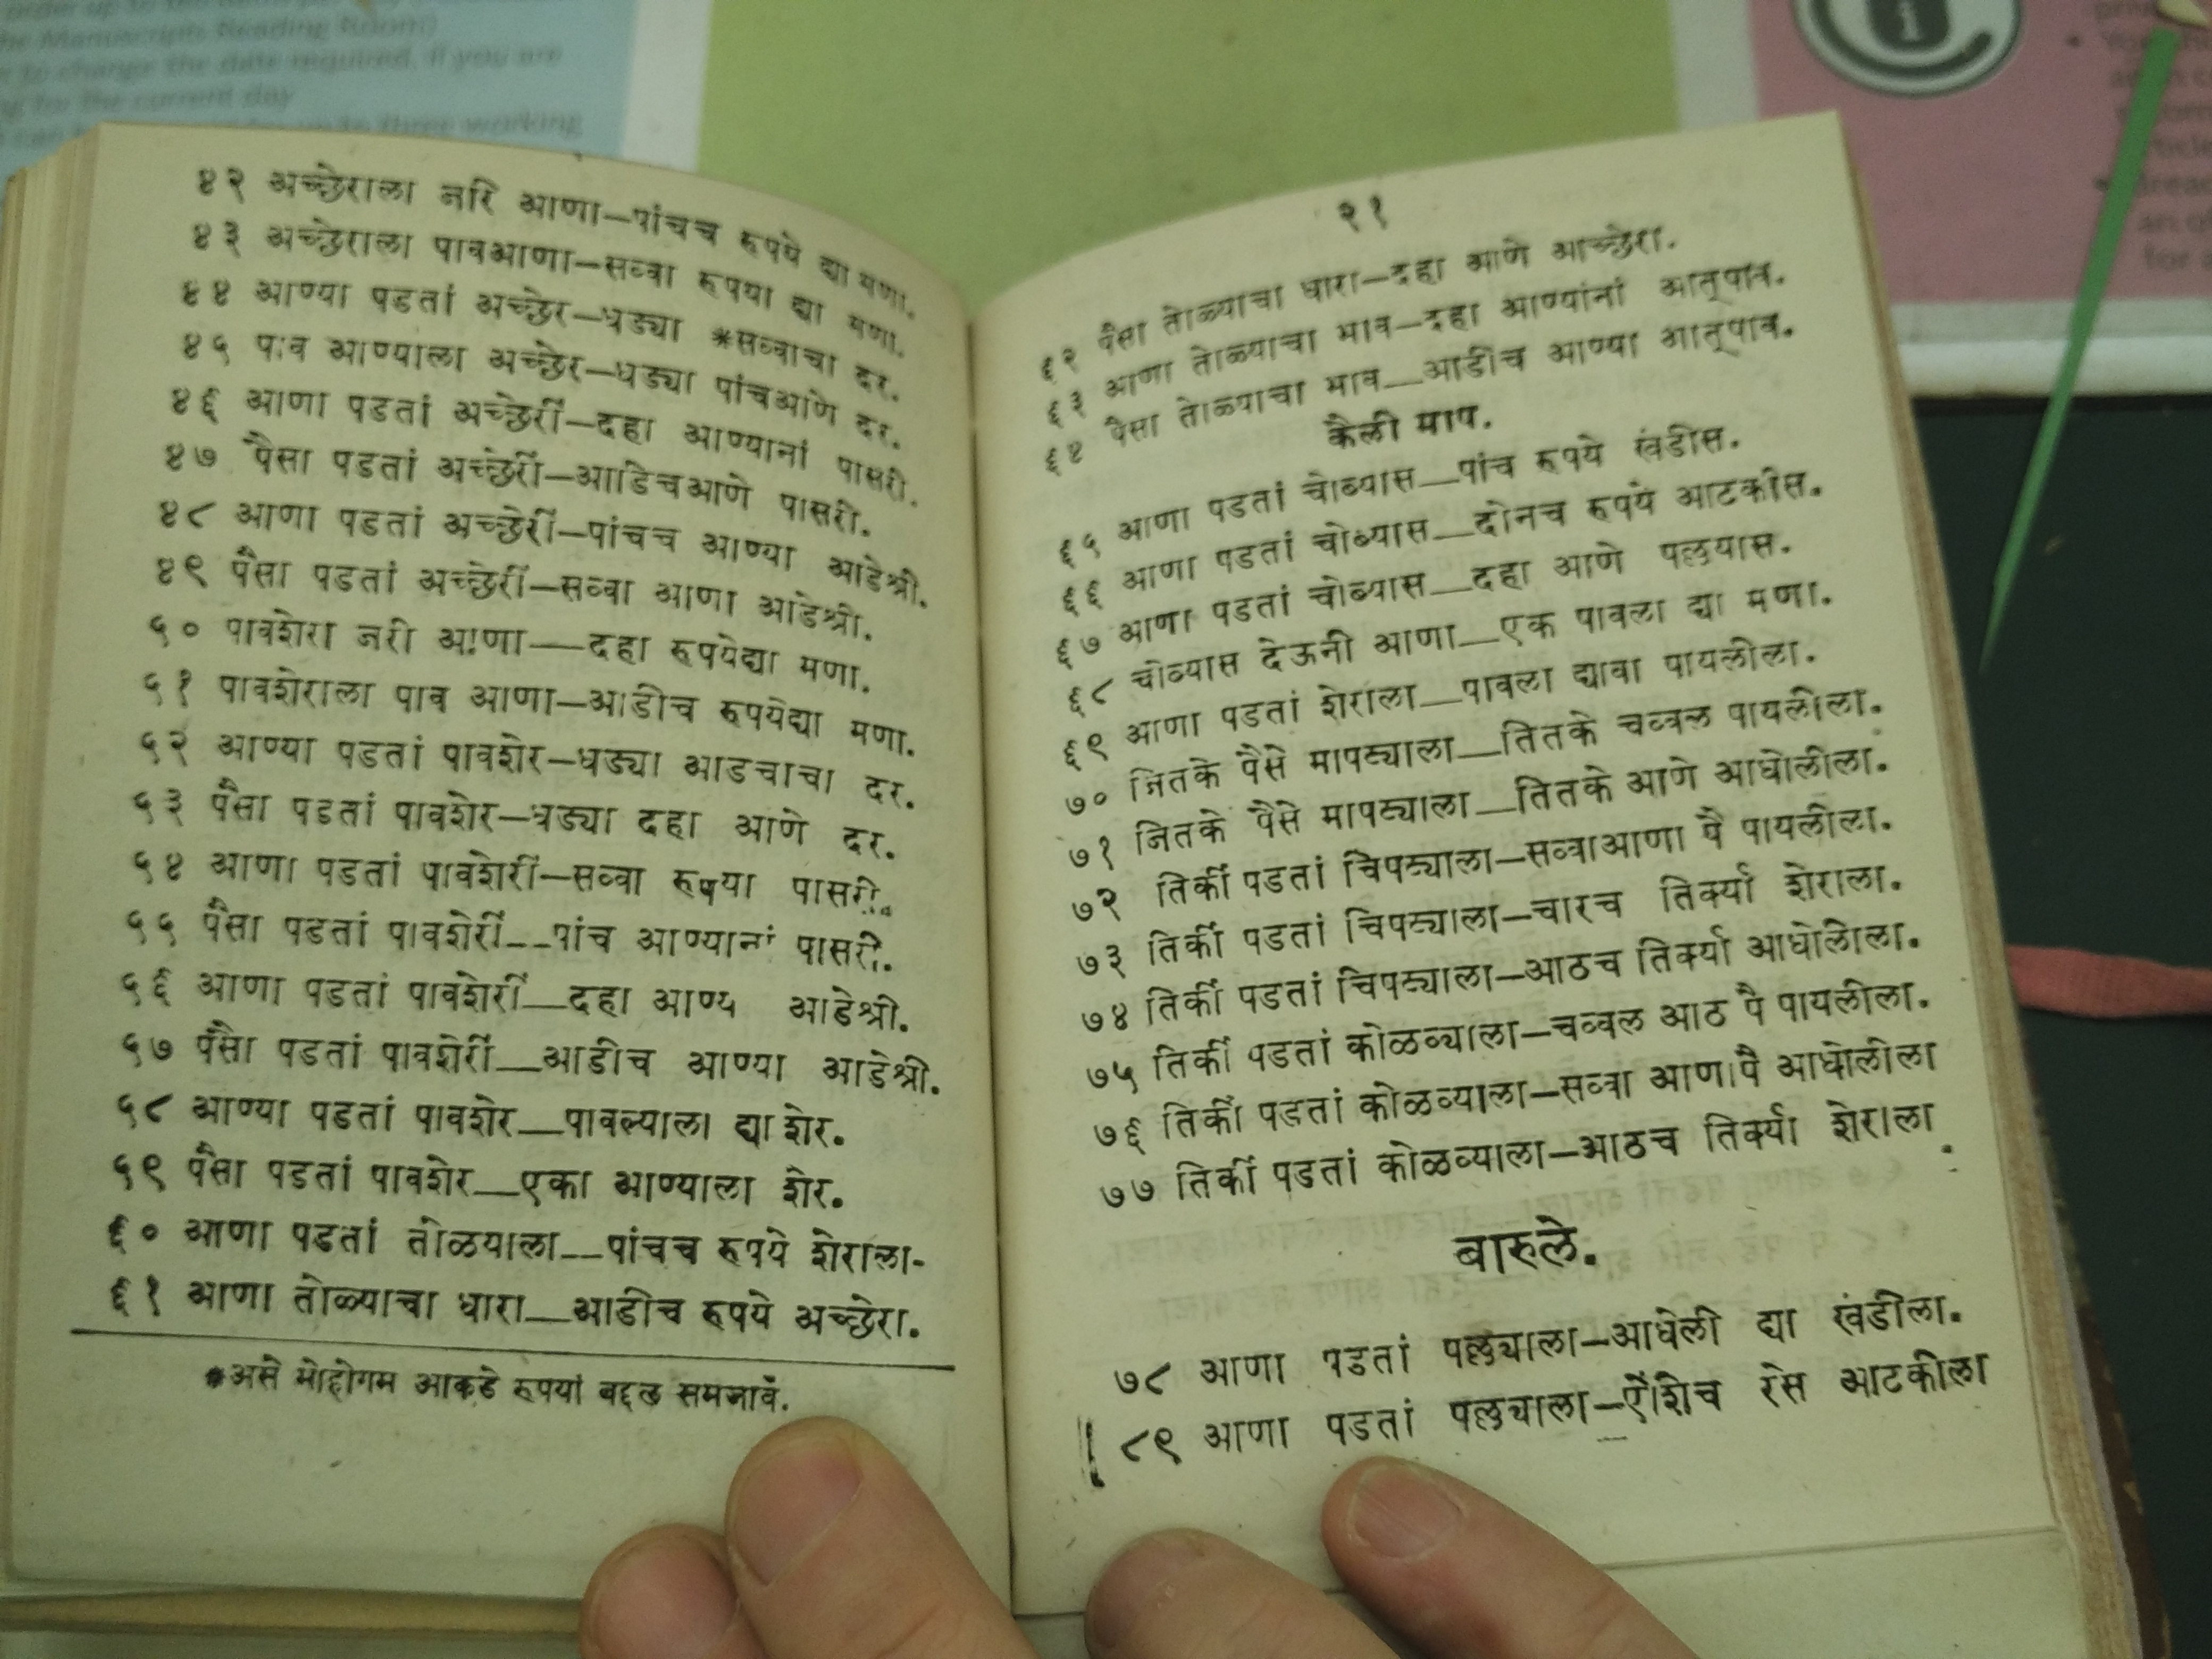 order up to
the Manuscripts Reading Room)
to change the date required, if you are
for the current day
three working
४२ अच्छेराला जरि आणा—पांचच रुपये द्या मणा.
४३ अच्छेराला पावआणा—सव्वा रुपया द्या मणा.
४४ आण्या पडतां अच्छेर—धड्या *सव्वाचा दर.
४५ पाव आण्याला अच्छेर—धड्या पांचआणे दर.
४६ आणा पडतां अच्छेरीं—दहा आण्यानां पासरी.
४७ पैसा पडतां अच्छेरीं—आाडिचआणे पासरी.
४८ आणा पडतां अच्छेरीं—पांचच आण्या आडेश्री.
४९ पैसा पडतां अच्छेरीं—सव्वा आणा आडेश्री.
५० पावशेरा जरी आणा—दहा रुपयेद्या मणा.
५१ पावशेराला पाव आणा—आडीच रुपयेद्या मणा.
५२ आण्या पडतां पावशेर—धड्या आडचाचा दर.
५३ पैसा पडतां पावशेर—धड्या दहा आणे दर.
५४ आणा पडतां पावशेरीं—सव्वा रुपया पासरी.
५५ पैसा पडतां पावशेरीं—पांच आण्यानां पासरी.
५६ आणा पडतां पावशेरीं—दहा आण्य आडेश्री.
५७ पैसा पडतां पावशेरीं—आडीच आण्या आडेश्री.
५८ आण्या पडतां पावशेर—पावल्याला द्या शेर.
५९ पैसा पडतां पावशेर—एका आण्याला शेर.
६० आणा पडतां तोळयाला—पांचच रुपये शेराला-
६१ आणा तोळ्याचा धारा—आडीच रुपये अच्छेरा.
*असे मोहोगम आकडे रुपयां बद्दल समजावे.
२१
६२ पैसा तोळ्याचा धारा—दहा आणे आच्छेरा.
६३ आणा तोळ्याचा भाव—दहा आण्यांनां आत्पाव.
६४ पैसा तोळ्याचा भाव—आडीच आण्या आत्पाव.
कैली माप.
६५ आणा पडतां चोथ्यास—पांच रुपये खंडीस.
६६ आणा पडतां चोथ्यास—दोनच रुपये आटकीस.
६७ आणा पडतां चोथ्यास—दहा आणे पल्लयास.
६८ चोथ्यास देऊनी आणा—एक पावला द्या मणा.
६९ आणा पडतां शेराला—पावला द्यावा पायलीला.
७० जितके पैसे मापट्याला—तितके चव्वल पायलीला.
७१ जितके पैसे मापट्याला—तितके आणे आधोलीला.
७२ तिर्की पडतां चिपट्याला—सव्वाआणा पै पायलीला.
७३ तिर्कीं पडतां चिपट्याला—चारच तिर्क्या शेराला.
७४ तिर्कीं पडतां चिपट्याला—आठच तिर्क्या आधोलीला.
७५ तिर्कीं पडतां कोळव्याला—चव्वल आठ पै पायलीला.
७६ तिर्कीं पडतां कोळव्याला—सव्वा आणापै आधोलीला
७७ तिर्कीं पडतां कोळव्याला—आठच तिर्क्या शेराला.
बारुले.
७८ आणा पडतां पल्लयाला—आधेली द्या खंडीला.
८९ आणा पडतां पल्लयाला—ऐंशिच रेस आटकीला